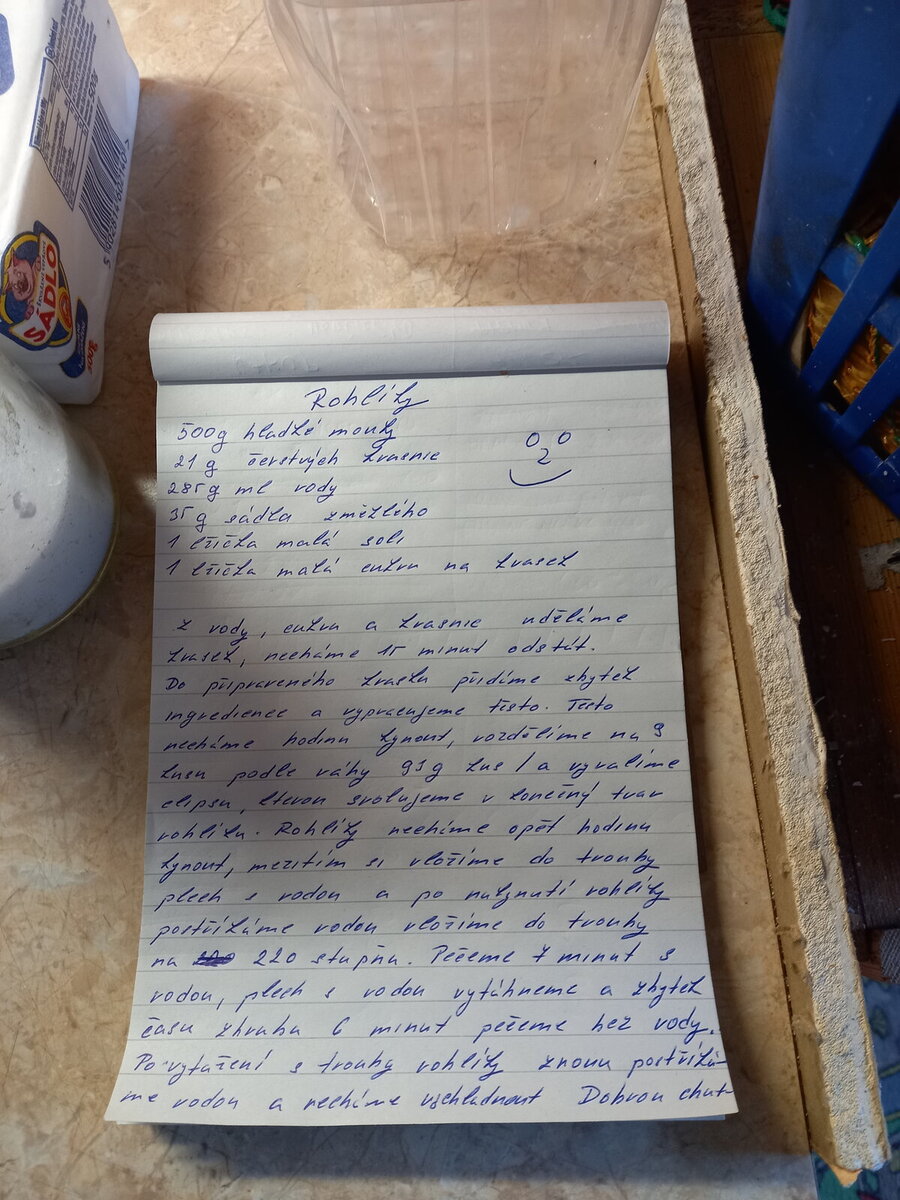 SÁDLO
500g
Rohlíky
500g hladké mouky
21 g čerstvých kvasnic
285g ml vody
35 g sádla změklého
1 lžička malá soli
1 lžička malá cukru na kvasek
Z vody, cukru a kvasnic uděláme
kvasek, necháme 15 minut odstát.
Do připraveného kvasku přidáme zbytek
ingredience a vypracujeme těsto. Těsto
necháme hodinu kynout, rozdělíme na 9
kusu podle váhy 93g kus / a vyválíme
elipsu, kterou srolujeme v konečný tvar
rohlíku. Rohlíky necháme opět hodinu
kynout, mezitím si vložíme do trouby
plech s vodou a po nakynutí rohlíky
postříkáme vodou vložíme do trouby
na 220 stupňu. Pečeme 7 minut s
vodou, plech s vodou vytáhneme a zbytek
času zhruba 6 minut pečeme bez vody.
Po vytažení s trouby rohlíky znovu postříká-
me vodou a necháme vychladnout Dobrou chuť